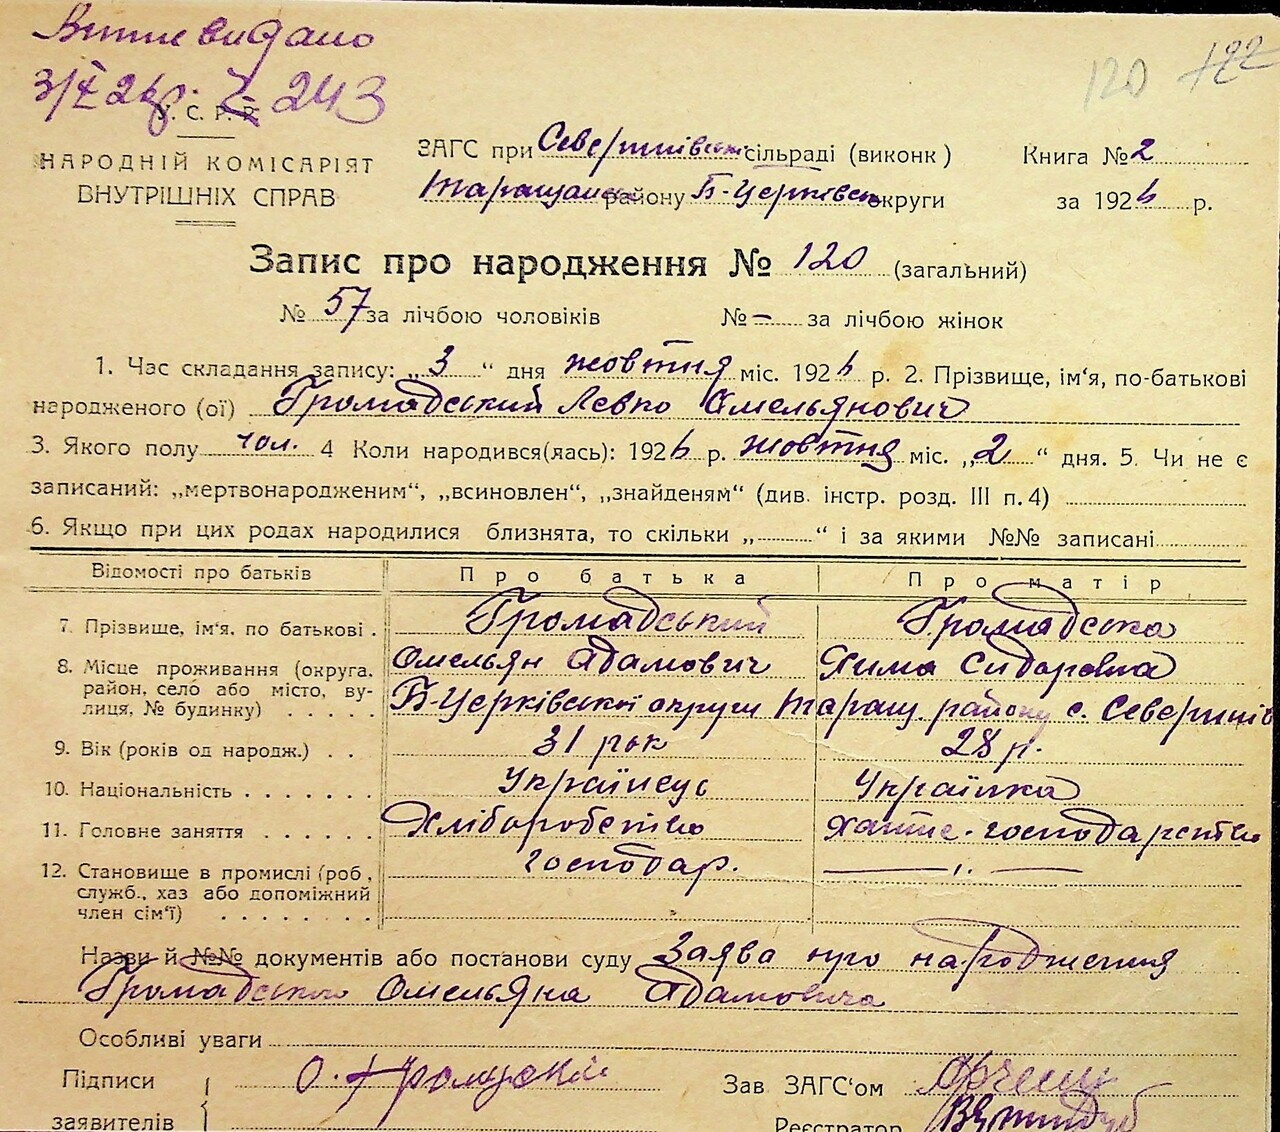 Витяг видано
3/X 26р. № 243
120 122
У. С. Р. Р.
НАРОДНІЙ КОМІСАРІЯТ
ВНУТРІШНІХ СПРАВ
ЗАГС при Северинівськ. сільраді (виконк)
Таращанськ. району Б-Церківськ. округи
Книга № 2
за 1926 р.
Запис про народження № 120 (загальний)
№ 57 за лічбою чоловіків № – за лічбою жінок
1. Час складання запису: „3“ дня жовтня міс. 1926 р. 2. Прізвище, ім‘я, по-батькові
народженого (ої) Громадський Левко Омельянович
3. Якого полу чол. 4 Коли народився(лась): 1926 р. жовтня міс. „2“ дня. 5. Чи не є
записаний: „мертвонародженим“, „всиновлен“, „знайденям“ (див. інстр. розд. III п. 4)
6. Якщо при цих родах народилися близнята, то скільки „ “ і за якими №№ записані
Відомості про батьків Про батька Про матір
7. Прізвище, ім‘я, по батькові . Громадський Громадська
Омельян Адамович Хима Сидоровна
8. Місце проживання (округа, район, село або місто, вулиця, № будинку) . . . . . Б-Церківської округи Таращ. району с. Северинів
9. Вік (років од народж.) . . 31 рік 28 р.
10. Національність . . . . . . . Українець Українка
11. Головне заняття . . . . . . Хліборобство хатнє господарство
12. Становище в промислі (роб., служб., хаз або допоміжний член сім‘ї) . . . . . . . . господар. —„—
Назви й №№ документів або постанови суду Заява про народження
Громадського Омельяна Адамовича
Особливі уваги
Підписи О. Громадский Зав. ЗАГС‘ом
заявителів Реєстратор